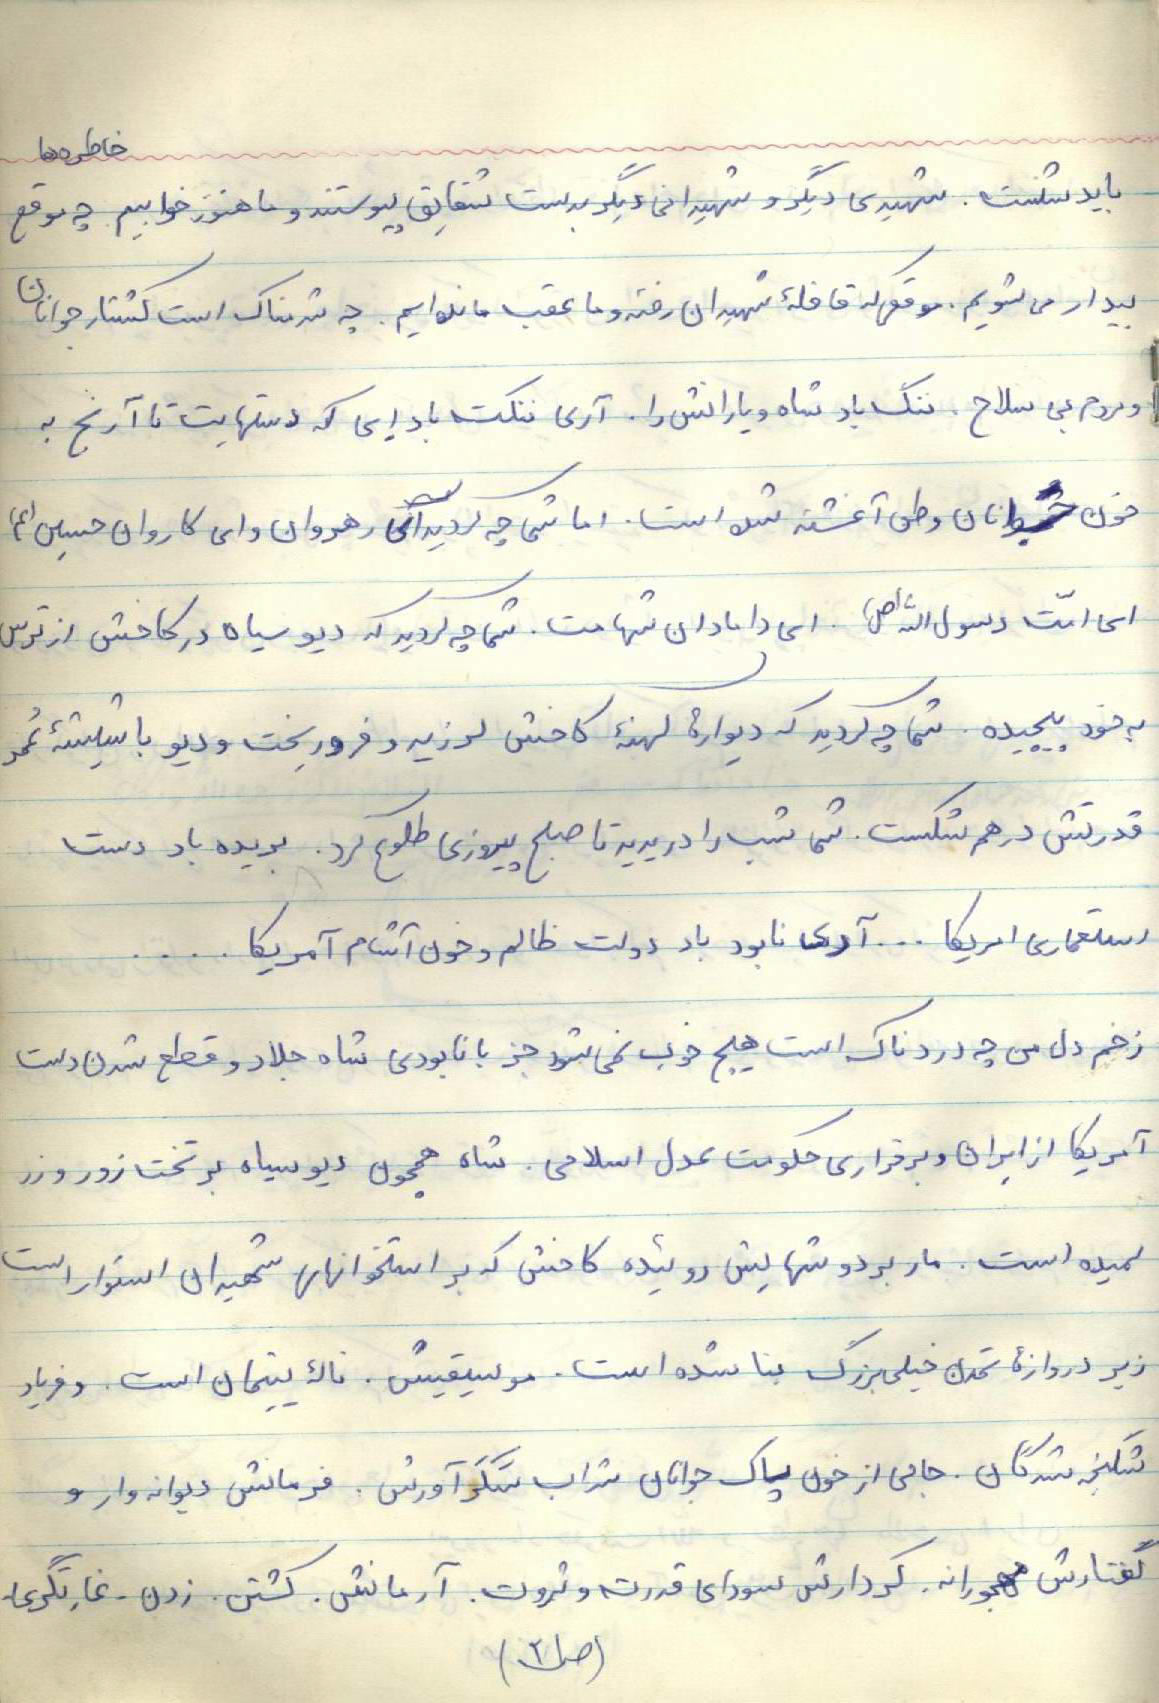 خاطره‌ها
باید شکفت. شهیدی دیگر و شهیدانی دیگر بدست شقایق پیوستند و ما هنوز خوابیم. چه موقع
بیدار می شویم. موقعیکه قافلهٔ شهیدان رفته و ما عقب مانده‌ایم. چه شرمناک است کشتار جوانان
و مردم بی سلاح. ننگ باد شاه و یارانش را. آری ننگت باد ای که دستهایت تا آرنج به
خون جوانان وطن آغشته شده است. اما شما چه کردید ای رهروان و ای کاروان حسین (ع)
ای امّت رسول الله (ص). ای دامادان شهامت. شما چه کردید که دیو سیاه در کاخش از ترس
به خود پیچیده. شما چه کردید که دیوارهٔ کهنهٔ کاخش لرزید و فرو ریخت و دیو با شیشهٔ عُمر
قدرتش درهم شکست. شما شب را دریدید تا صبح پیروزی طلوع کرد. بریده باد دست
استعماری امریکا ... آری نابود باد دولت ظالم و خون آشام آمریکا ....
زخم دل من چه دردناک است هیچ خوب نمی شود جز با نابودی شاه جلاد و قطع شدن دست
آمریکا از ایران و برقراری حکومت عدل اسلامی. شاه همچون دیو سیاه بر تخت زور و زر
لمیده است. مار بر دو شهایش روئیده کاخش که بر استخوانهای شهیدان استوار است
زیر دروازهٔ تمدن خیلی بزرگ بنا شده است. موسیقیش. نالهٔ یتیمان است. و فریاد
شکنجه شدگان. جامی از خون پاک جوانان شراب سُکرآورش. فرمانش دیوانه وار و
گفتارش مجبورانه. کردارش سودای قدرت و ثروت. آرمانش. کشتن. زدن - غارتگری.
(ص ۲)